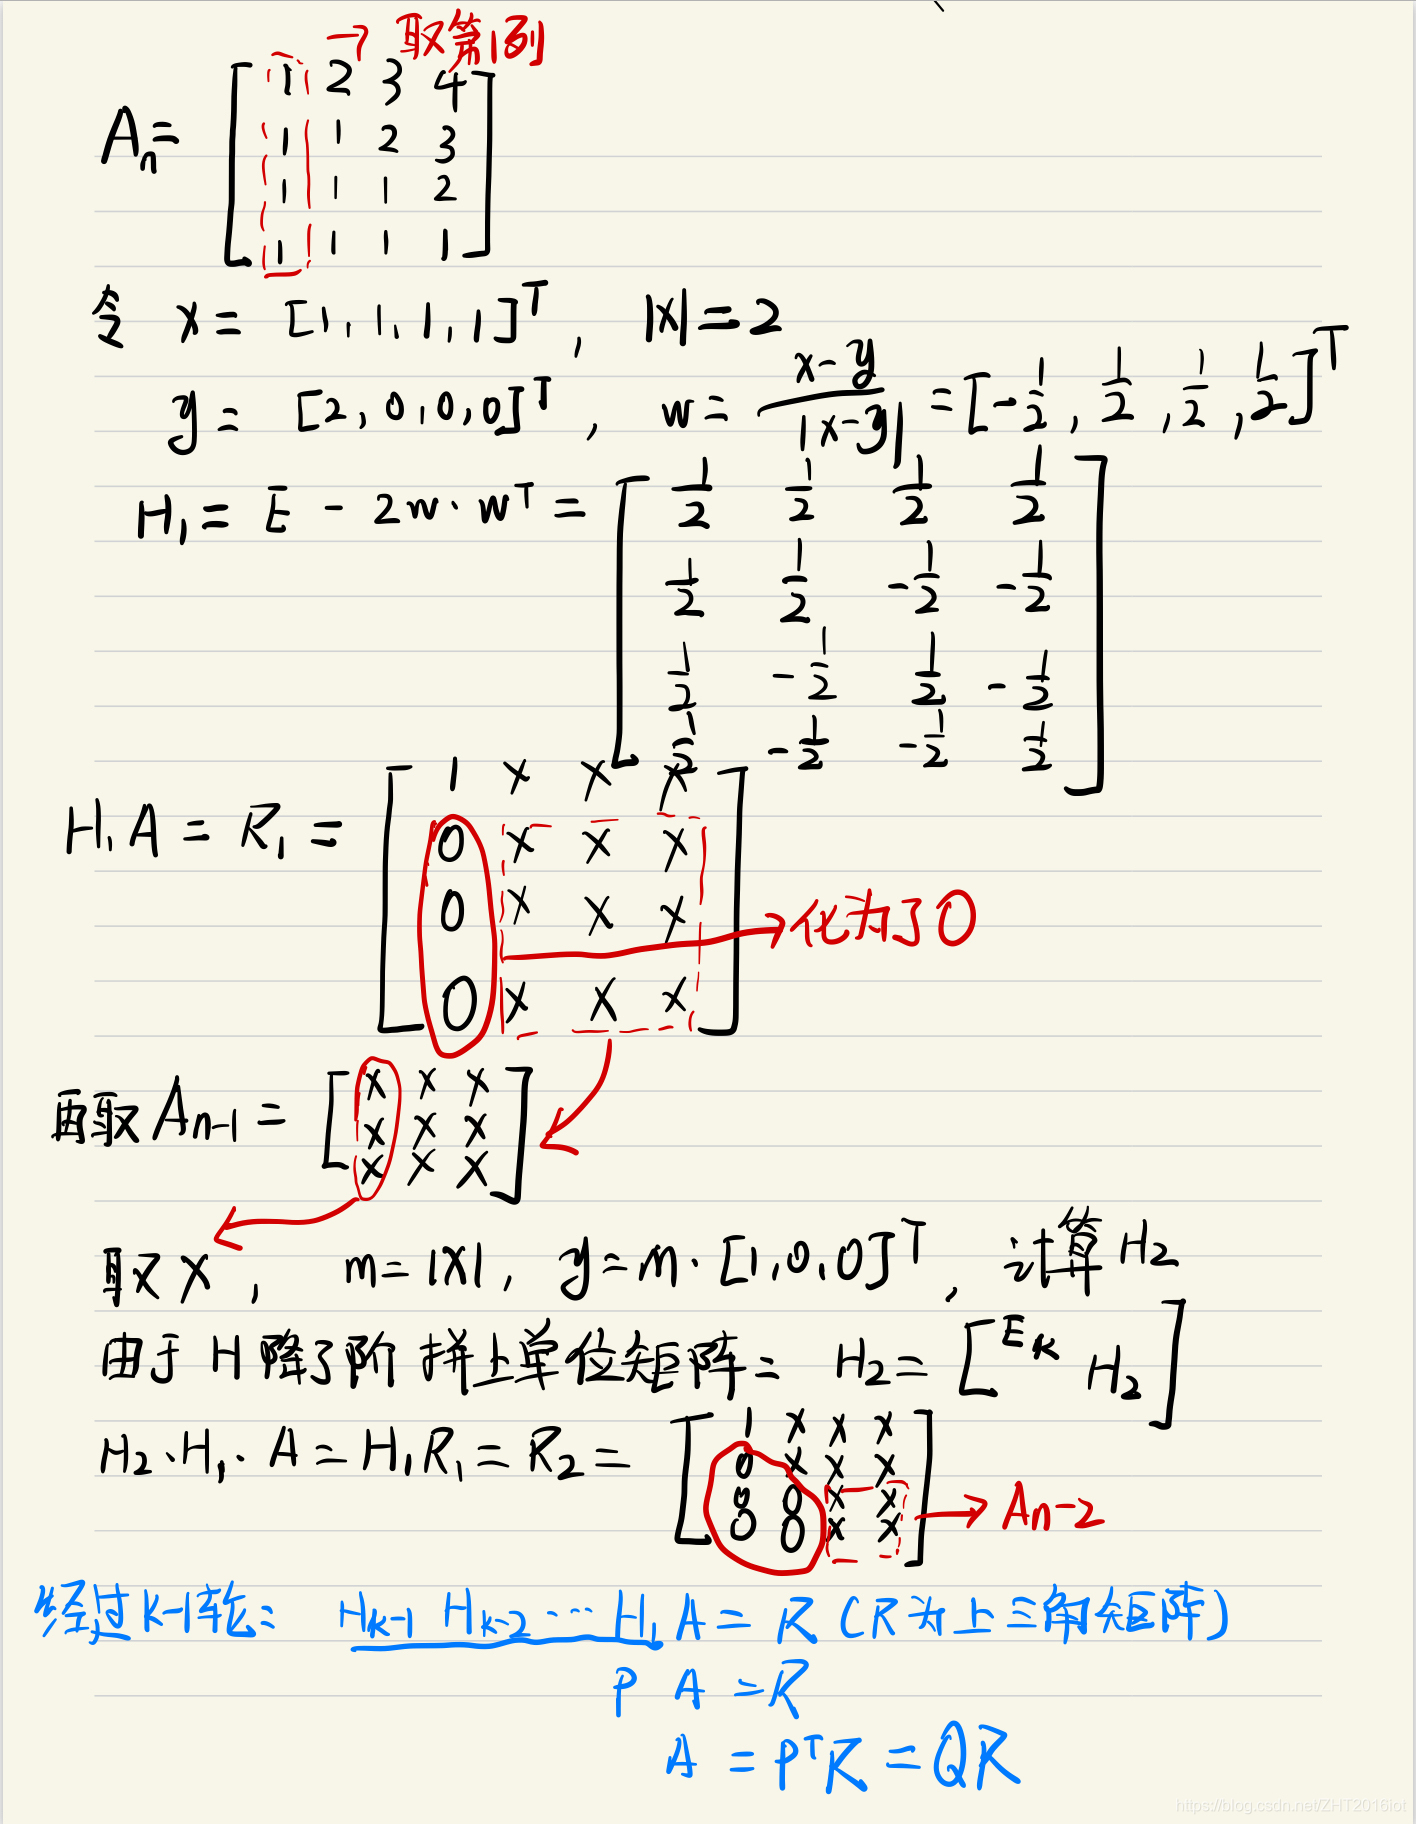 → 取第1列
Aₙ = [1 2 3 4
1 1 2 3
1 1 1 2
1 1 1 1]
令 x = [1, 1, 1, 1]ᵀ, |x| = 2
y = [2, 0, 0, 0]ᵀ, w = (x-y)/|x-y| = [-1/2, 1/2, 1/2, 1/2]ᵀ
H₁ = E - 2w·wᵀ = [1/2 1/2 1/2 1/2
1/2 1/2 -1/2 -1/2
1/2 -1/2 1/2 -1/2
1/2 -1/2 -1/2 1/2]
H₁A = R₁ = [1 × × ×
0 × × ×
0 × × ×
0 × × ×] → 化为了0
再取 Aₙ₋₁ = [× × ×
× × ×
× × ×]
取 X, m = |X|, y = m·[1, 0, 0]ᵀ, 计算 H₂
由于 H 降了阶 拼上单位矩阵 = H₂ = [Eₖ H₂]
H₂·H₁·A = H₁R₁ = R₂ = [1 × × ×
0 × × ×
0 0 × ×
0 0 × ×] → Aₙ₋₂
经过K-1轮: Hₖ₋₁ Hₖ₋₂ ··· H₁ A = R (R为上三角矩阵)
P A = R
A = PᵀR = QR
https://blog.csdn.net/ZHT2016iot